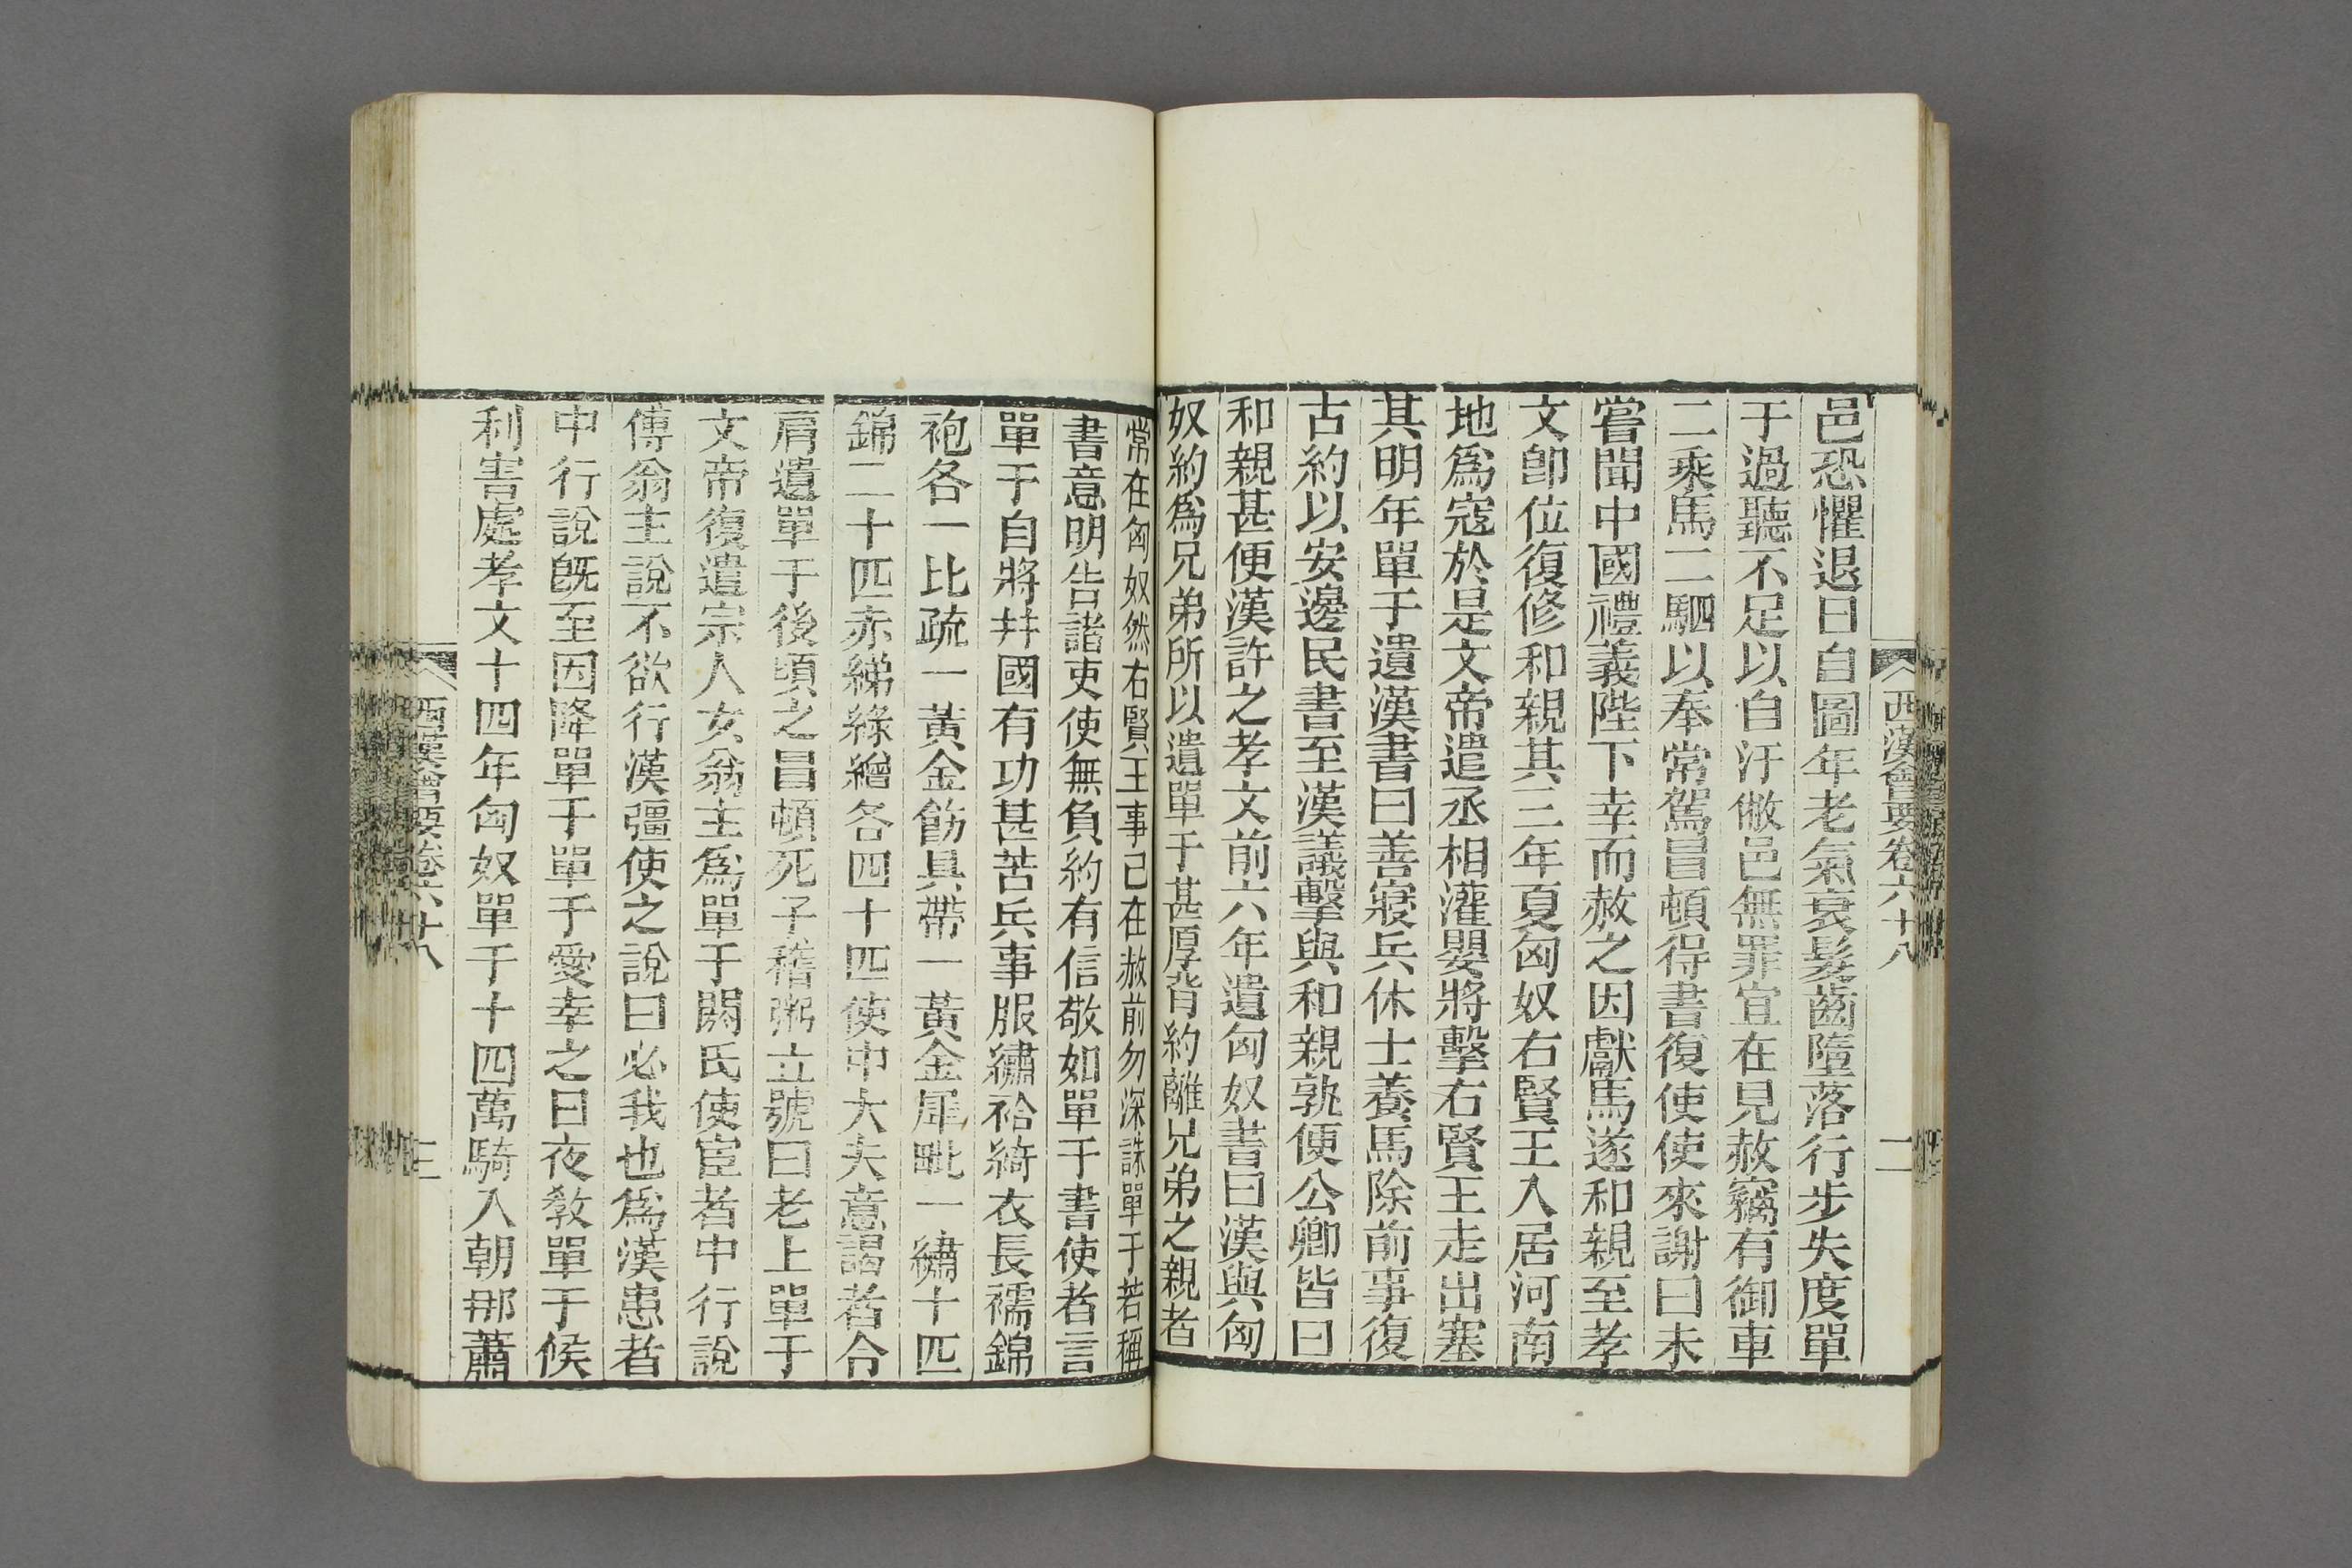 西漢會要卷六十八
二
邑恐懼退日自圖年老氣衰髮齒墮落行步失度單
于過聽不足以自汙敝邑無罪宜在見赦竊有御車
二乘馬二駟以奉常駕冒頓得書復使使來謝曰未
嘗聞中國禮義陛下幸而赦之因獻馬遂和親至孝
文卽位復修和親其三年夏匈奴右賢王入居河南
地爲寇於是文帝遣丞相灌嬰將擊右賢王走出塞
其明年單于遺漢書曰善寢兵休士養馬除前事復
古約以安邊民書至漢議擊與和親孰便公卿皆曰
和親甚便漢許之孝文前六年遺匈奴書曰漢與匈
奴約爲兄弟所以遺單于甚厚背約離兄弟之親者
常在匈奴然右賢王事已在赦前勿深誅單于若稱
書意明告諸吏使無負約有信敬如單于書使者言
單于自將幷國有功甚苦兵事服繡袷綺衣長襦錦
袍各一比疏一黃金飭具帶一黃金犀毗一繡十匹
錦二十匹赤綈綠繒各四十匹使中大夫意謁者令
肩遺單于後頃之冒頓死子稽粥立號曰老上單于
文帝復遣宗人女翁主爲單于閼氏使宦者中行說
傅翁主說不欲行漢彊使之說曰必我也爲漢患者
中行說旣至因降單于單于愛幸之日夜敎單于候
利害處孝文十四年匈奴單于十四萬騎入朝那蕭
西漢會要卷六十八
三